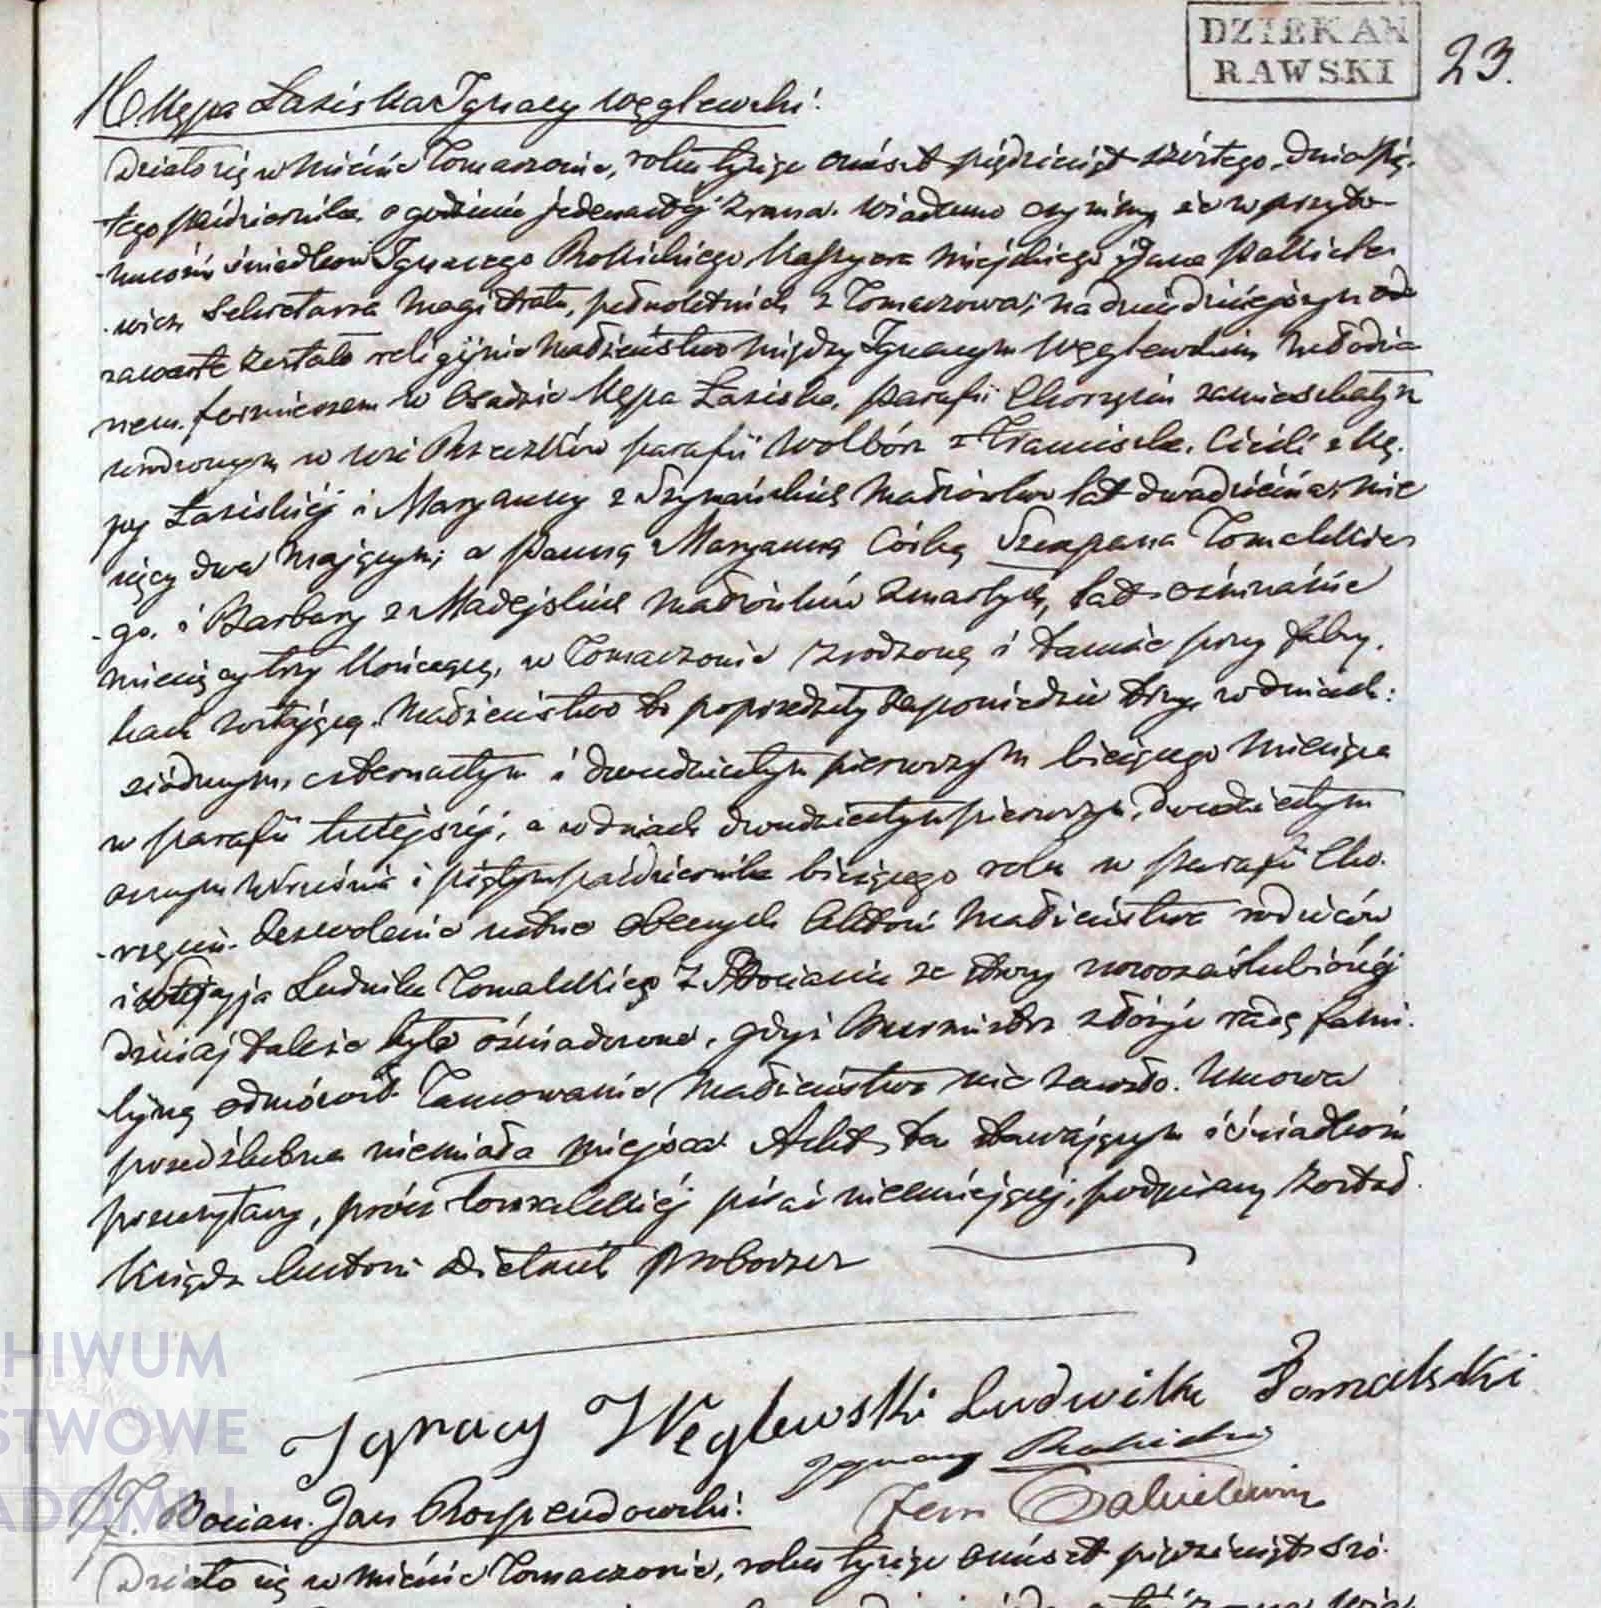 DZIEKAN
RAWSKI
23.
16. Kępa Łaziska Ignacy Węglewski.
Działo się w Mieście Tomaszowie, roku tysiąc ośmset piędziesiąt szóstego, dnia pią-
tego października o godzinie jedenastéj zrana. Wiadomo czynimy że w przyto-
-mności świadków Ignacego Rokickiego Kassyera Miejskiego i Jana
-wicza Sekretarza Magistratu, pełnoletnich z Tomaszowa; na dniu dzisiejszym
zawarte zostało religijnie Małżeństwo między Ignacym Węglewskim Młodzia-
nem, formierzem w Osadzie Kępa Łaziska, parafii Chorzęcin zamieszkałym
urodzonym w wsi parafii Wolbórz z Franciszka, Cieśli z Kę-
py Łaziskiéj i Maryanny z Szymańskich Małżonków lat dwadzieścia, mie-
sięcy dwa mającym; a Panną Maryanną Córką Szczepana Tomalskie-
-go i Barbary z Madejskich Małżonków zmarłych, lat ośmnaście
miesięcy trzy kończącą, w Tomaszowie zrodzoną i tamże przy fabry-
kach zostającą. Małżeństwo to poprzedziły zapowiedzie trzy, w dniach:
siódmym, czternastym i dwudziestym pierwszym bieżącego Miesiąca
w parafii tutejszéj, a w dniach dwudziestym pierwszym, dwudziestym
osmym Września i piątym października bieżącego roku w parafii Cho-
-rzęcin. Zezwolenie ustne obecnych Aktowi Małżeństwa rodziców
i Ludwika Tomalskiego z Bociania ze strony nowozaślubionéj
dzisiaj także było oświadczone, gdyż Burmistrz złożyć radę fami-
lijną odmówił. Tamowanie Małżeństwa nie zaszło. Umowa
przedślubna niemiała miejsca. Akt ten stawającym i świadkom
przeczytany, prócz Tomalskiéj pisać nieumiejącéj, podpisany został.
Ksiądz Antoni Proboszcz
Ignacy Węglewski Ludwik Tomalski
Ignacy Rokicki
Jan
17. Bocian. Jan Rozpendowski.
Działo się w Mieście Tomaszowie, roku tysiąc ośmset pięćdziesiąt szó-